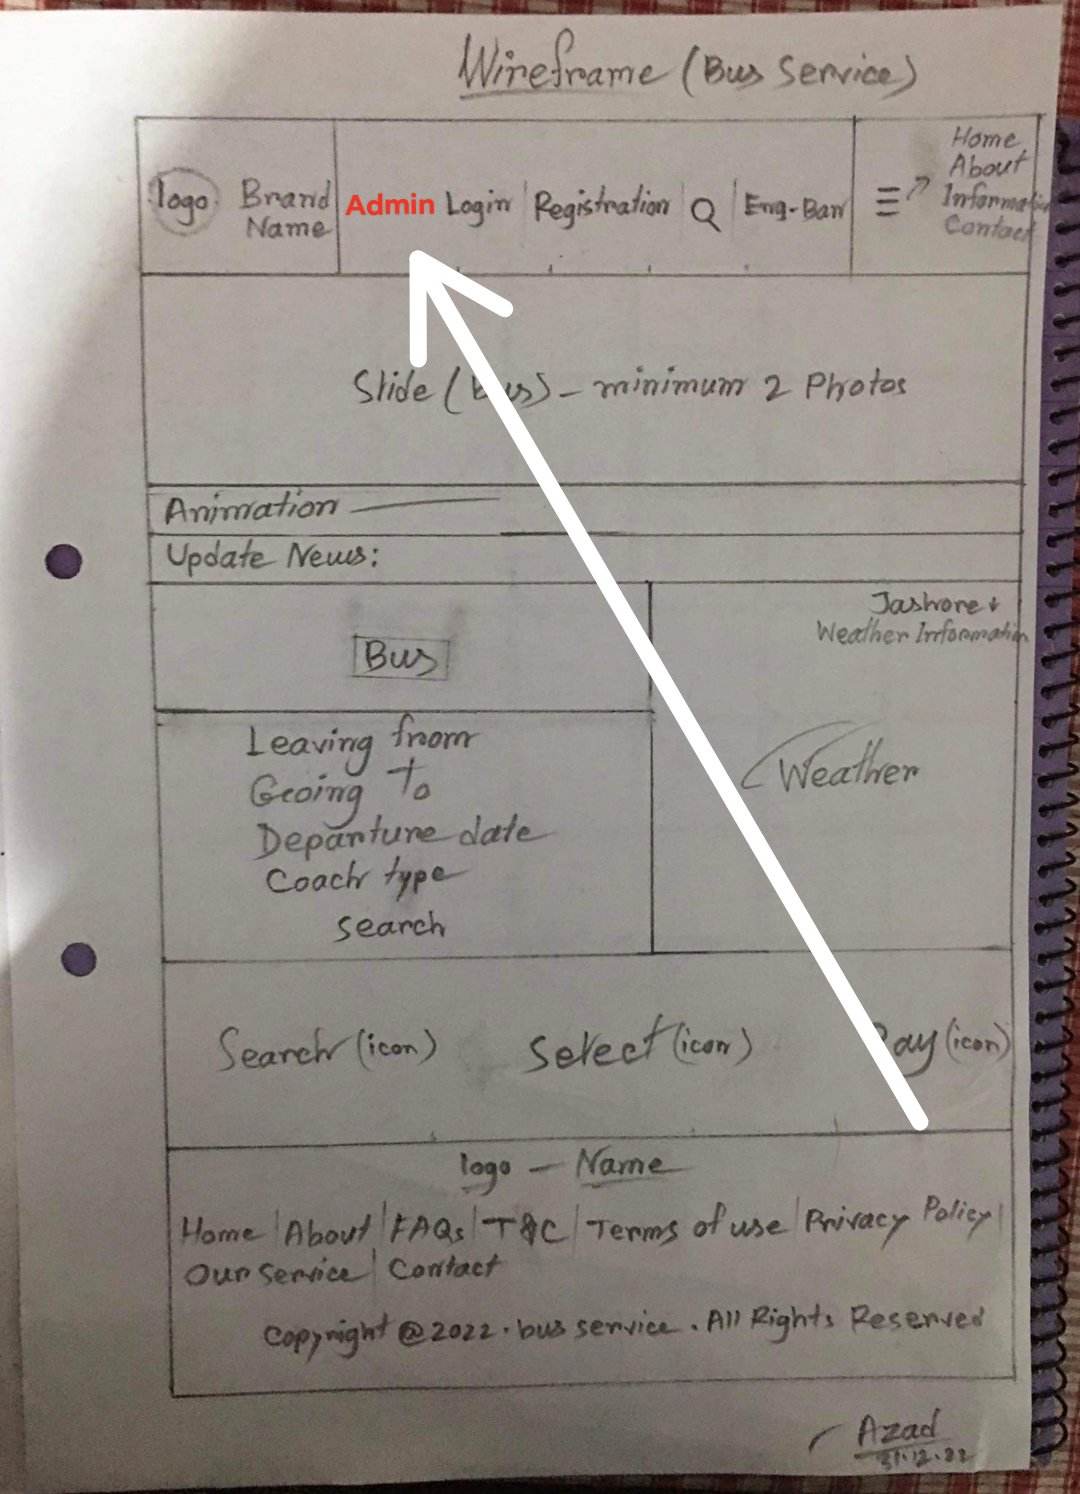 Wireframe (Bus Service)
logo Brand Name Admin Login Registration Eng-Ban
Home
About
Information
Contact
Slide (Bus) - minimum 2 Photos
Animation
Update News:
Bus
Jashore
Weather Information
Leaving from
Going To
Departure date
Coach type
search
Weather
Search (icon) Select (icon) Pay (icon)
logo - Name
Home | About | FAQs | T&C | Terms of use | Privacy Policy |
Our service | Contact
Copyright @2022. bus service. All Rights Reserved
Azad
31.12.22